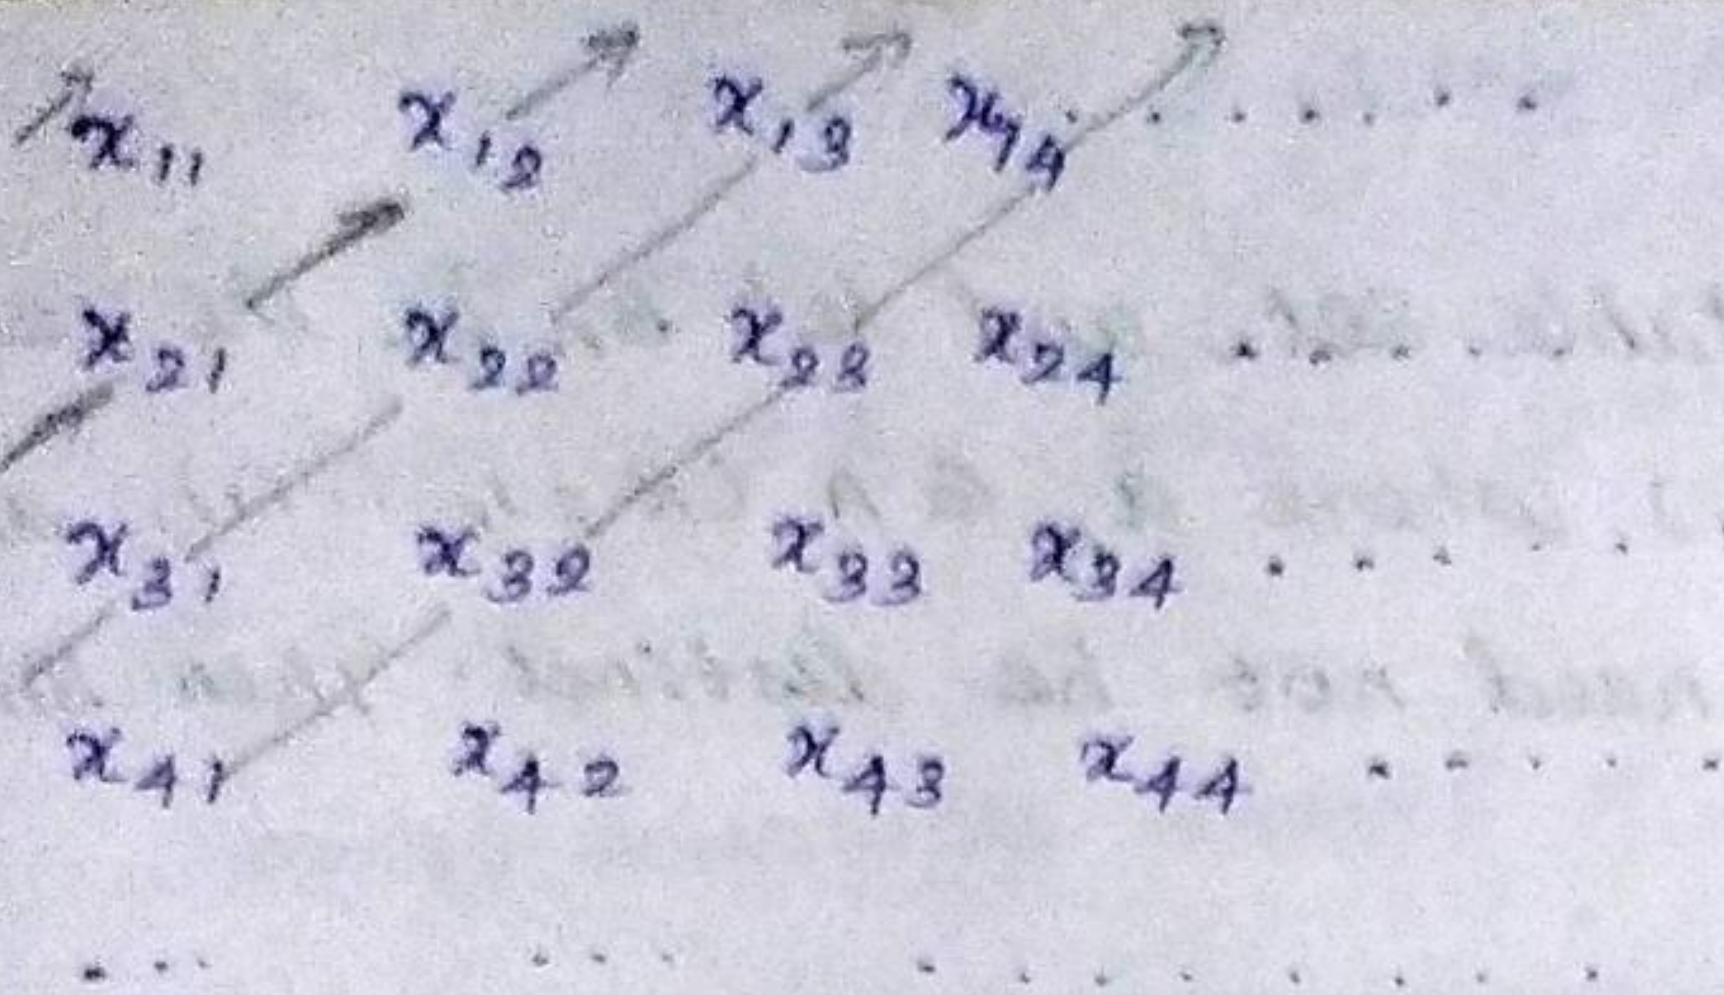 x₁₁ x₁₂ x₁₃ x₁₄ . . . . . . .
x₂₁ x₂₂ x₂₃ x₂₄ . . . . .
x₃₁ x₃₂ x₃₃ x₃₄ . . . . .
x₄₁ x₄₂ x₄₃ x₄₄ . . . . .
. . . . . . . . . . . . . .